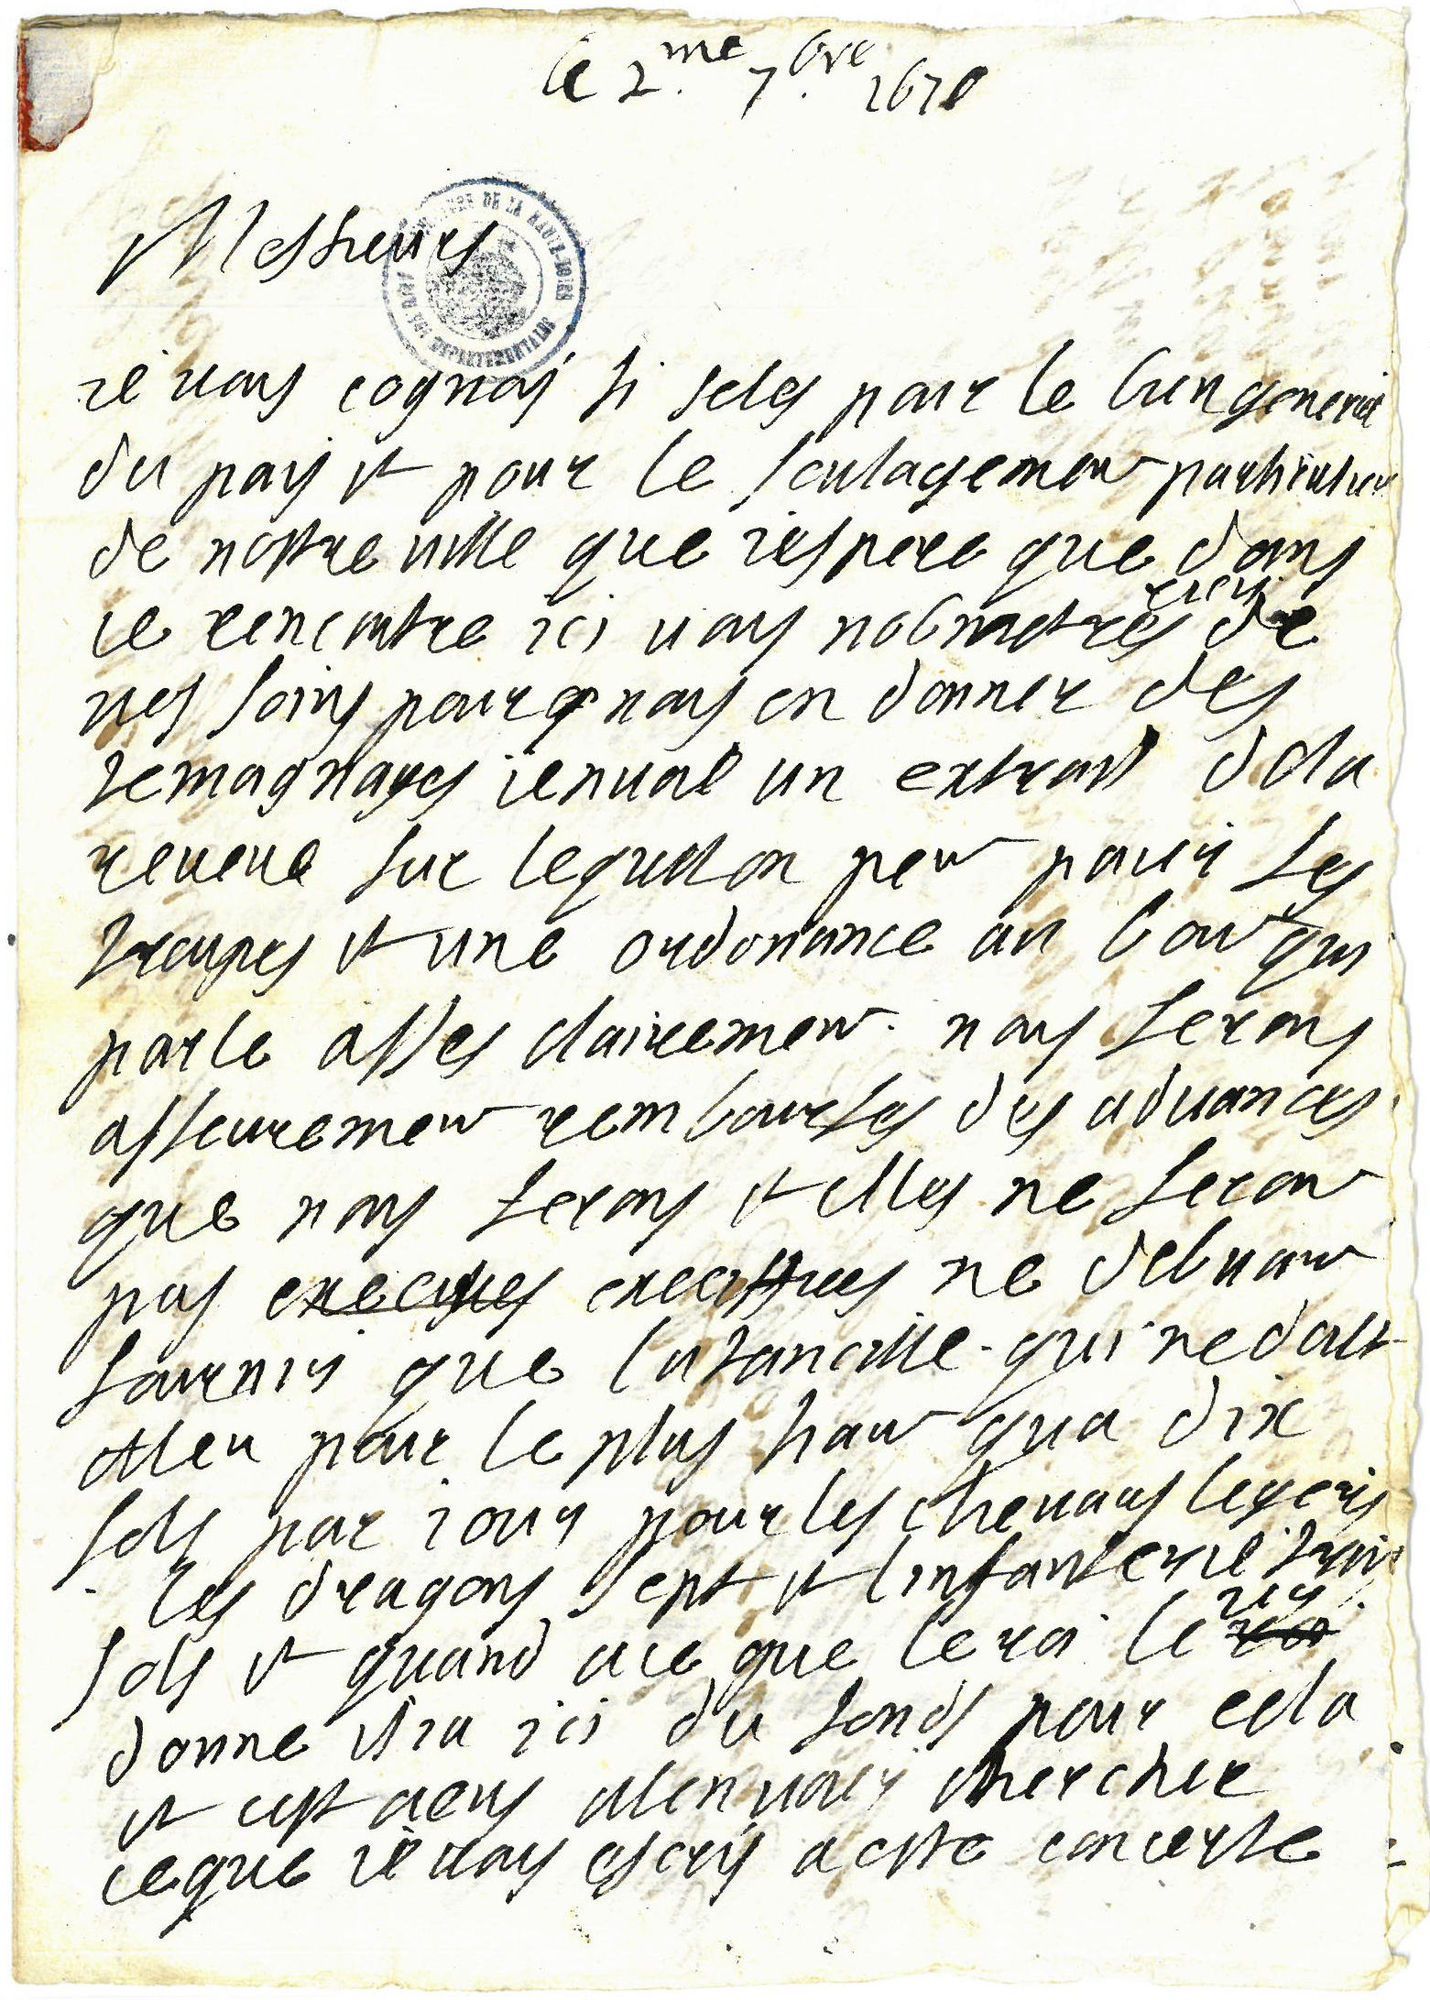 le 2.me 7.bre 1670
Messieurs
ie vous cognois si seles pour le bien general
du pais et pour le soulagement particulier
de nostre ville que iespere que dans
ce rencontre ici vous nobmetres rien de
vos soins pour nous en donner des
temognages ienvoie un extrait dela
reveue sur lequel on peut paier les
troupes et une ordonance au bout qui
parle asses clairement. nous serons
asseurement rembourses des advances
que nous ferons et elles ne seront
pas excessives ne debvant
fournir que lustancille qui ne doibt
aler pour le plus haut qua dix
sols par iour pour les chevaus legers
les dragons sept et linfanterie trois
sols et quand a ce que le roi leur
donne il i a ici du fonds pour cela
et cest a eus a lenvoier chercher
ce que ie vous escris a este concerte
ARCHIVES DEPARTEMENTALES DE LA HAUTE-LOIRE